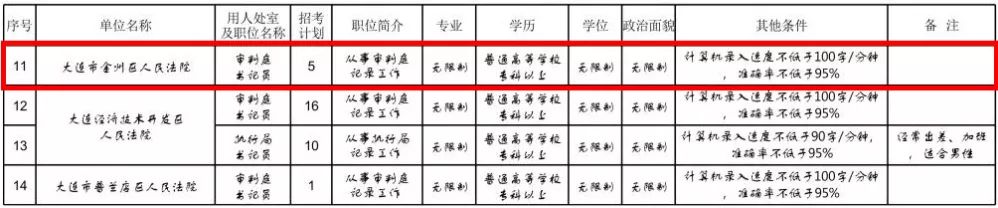 序号 单位名称 用人处室及职位名称 招考计划 职位简介 专业 学历 学位 政治面貌 其他条件 备 注
11 大连市金州区人民法院 审判庭书记员 5 从事审判庭记录工作 无限制 普通高等学校专科以上 无限制 无限制 计算机录入速度不低于100字/分钟，准确率不低于95%
12 大连经济技术开发区人民法院 审判庭书记员 16 从事审判庭记录工作 无限制 普通高等学校专科以上 无限制 无限制 计算机录入速度不低于100字/分钟，准确率不低于95%
13 执行局书记员 10 从事执行局记录工作 无限制 普通高等学校专科以上 无限制 无限制 计算机录入速度不低于90字/分钟，准确率不低于95% 经常出差、加班，适合男性
14 大连市普兰店区人民法院 审判庭书记员 1 从事审判庭记录工作 无限制 普通高等学校专科以上 无限制 无限制 计算机录入速度不低于100字/分钟，准确率不低于95%